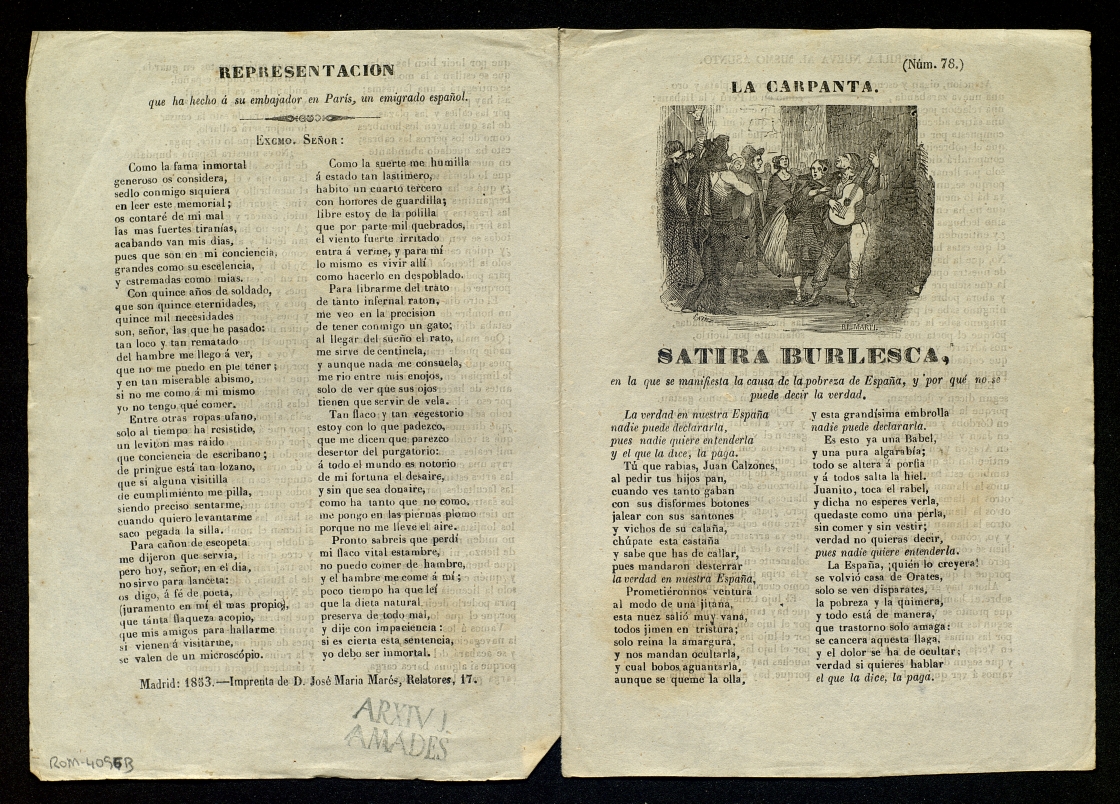 REPRESENTACION
que ha hecho á su embajador en París, un emigrado español.
EXCMO. SEÑOR:
Como la fama inmortal
generoso os considera,
sedlo conmigo siquiera
en leer este memorial;
os contaré de mi mal
las mas fuertes tiranías,
acabando van mis dias,
pues que son en mi conciencia,
grandes como su escelencia,
y estremadas como mias.
Con quince años de soldado,
que son quince eternidades,
quince mil necesidades
son, señor, las que he pasado:
tan loco y tan rematado
del hambre me llego á ver,
que no me puedo en pie tener;
y en tan miserable abismo,
si no me como á mi mismo
yo no tengo qué comer.
Entre otras ropas ufano,
solo al tiempo ha resistido,
un leviton mas raido
que conciencia de escribano;
de pringue está tan lozano,
que si alguna visitilla
de cumplimiento me pilla,
siendo preciso sentarme,
cuando quiero levantarme
saco pegada la silla.
Para cañon de escopeta
me dijeron que servia,
pero hoy, señor, en el dia,
no sirvo para lanceta:
os digo, á fé de poeta,
(juramento en mí el mas propio),
que tánta flaqueza acopio,
que mis amigos para hallarme
si vienen á visitarme,
se valen de un microscópio.
Como la suerte me humilla
á estado tan lastimero,
habito un cuarto tercero
con honores de guardilla;
libre estoy de la polilla
que por parte mil quebrados,
el viento fuerte irritado
entra á verme, y para mí
lo mismo es vivir allí
como hacerlo en despoblado.
Para librarme del trato
de tanto infernal raton,
me veo en la precision
de tener conmigo un gato;
al llegar del sueño el rato,
me sirve de centinela,
y aunque nada me consuela,
me rio entre mis enojos,
solo de ver que sus ojos
tienen que servir de vela.
Tan flaco y tan vegestorio
estoy con lo que padezco,
que me dicen que parezco
desertor del purgatorio:
á todo el mundo es notorio
de mi fortuna el desaire,
y sin que sea donaire,
como ha tanto que no como,
me pongo en las piernas plomo
porque no me lleve el aire.
Pronto sabreis que perdí
mi flaco vital estambre,
no puedo comer de hambre,
y el hambre me come á mí;
poco tiempo ha que leí
que la dieta natural
preserva de todo mal,
y dije con impaciencia:
si es cierta esta sentencia,
yo debo ser inmortal.
Madrid: 1853.—Imprenta de D. José Maria Marés, Relatores, 17.
ARXIU J.
AMADES
ROM-4095B
(Núm. 78.)
LA CARPANTA.
SATIRA BURLESCA,
en la que se manifiesta la causa de la pobreza de España, y por qué no se
puede decir la verdad.
La verdad en nuestra España
nadie puede declararla,
pues nadie quiere entenderla
y el que la dice, la paga.
Tú que rabias, Juan Calzones,
al pedir tus hijos pan,
cuando ves tanto gaban
con sus disformes botones
jalear con sus santones
y vichos de su calaña,
chúpate esta castaña
y sabe que has de callar,
pues mandaron desterrar
la verdad en nuestra España,
Prometiéronnos ventura
al modo de una jitana,
esta nuez salió muy vana,
todos jimen en tristura;
solo reina la amargura,
y nos mandan ocultarla,
y cual bobos aguantarla,
aunque se queme la olla,
y esta grandísima embrolla
nadie puede declararla.
Es esto ya una Babel,
y una pura algarabía;
todo se altera á porfia
y á todos salta la hiel.
Juanito, toca el rabel,
y dicha no esperes verla,
quedaste como una perla,
sin comer y sin vestir;
verdad no quieras decir,
pues nadie quiere entenderla.
La España, ¡quién lo creyera!
se volvió casa de Orates,
solo se ven disparates,
la pobreza y la quimera,
y todo está de manera,
que trastorno solo amaga:
se cancera aquesta llaga,
y el dolor se ha de ocultar;
verdad si quieres hablar
el que la dice, la paga.